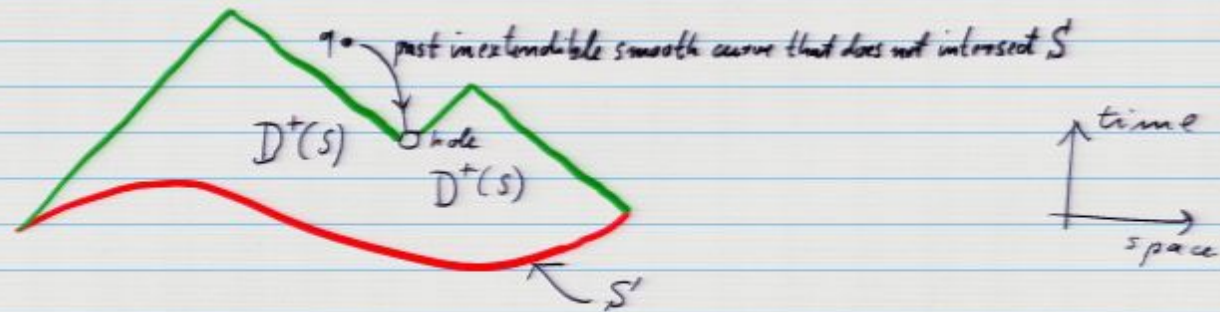 q
past inextendible smooth curve that does not intersect S
time
hole
D⁺(S)
D⁺(S)
space
S